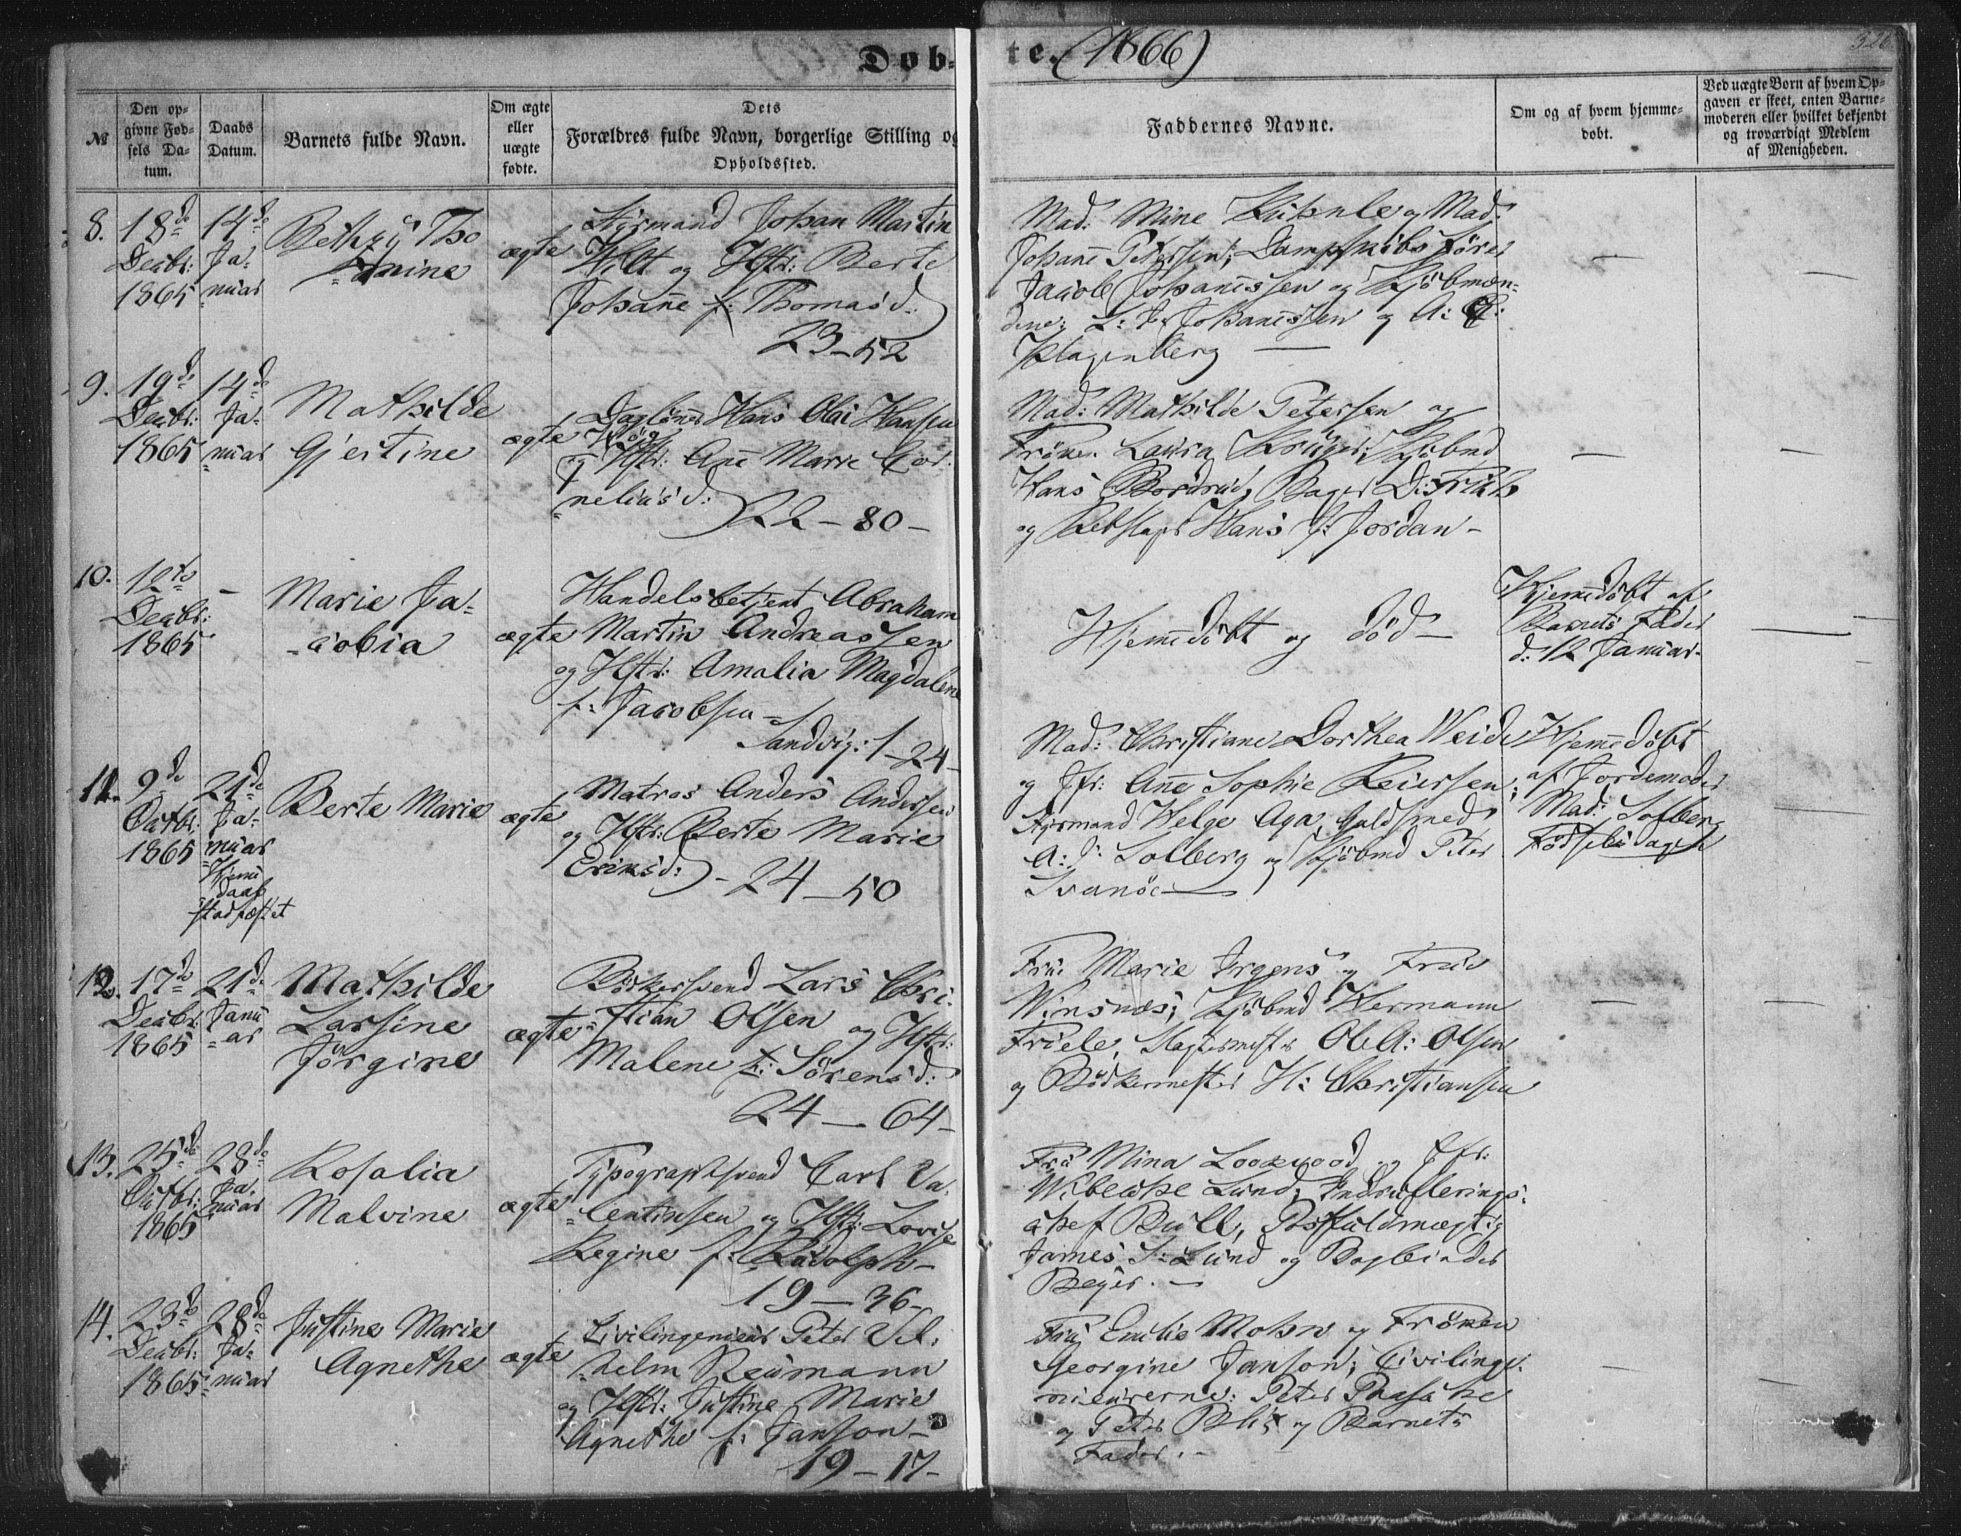 Døb-
te. (1866)
326
№
Den op-
givne Fød-
sels Da-
tum.
Daabs
Datum.
Barnets fulde Navn.
Om ægte
eller
uægte
fødte.
Dets
Forældres fulde Navn, borgerlige Stilling og
Opholdssted.
Faddernes Navne.
Om og af hvem hjemme-
døbt.
Ved uægte Børn af hvem Op-
gaven er skeet, enten Barne-
moderen eller hvilket bekjendt
og troværdigt Medlem
af Menigheden.
8.
18de
Decbr:
1865
14de
Ja-
nuar
Bethzy Tho
mine
ægte
Styrmand Johan Martin
Wilt og Hstr: Berte
Johane f: Thomasd:
23-52
Mad: Mine Kühnle og Mad:
Johane Petersen; Dampskibsfører
Jacob Johanessen og Kjøbmæn-
dene L: J. Johanessen og A:
Klagenberg
—
—
9.
19de
Decbr:
1865
14de
Ja-
nuar
Mathilde
Gjertine
ægte
Daglønr Hans Olai Hansen
og Hstr: Ane Marie Cor-
neliusd:
22-80-
Mad: Mathilde Petersen og
Frøken Laura Krüger; Kjøbmd
Hans Bordrud, Bager D: Frich
og Rebslager Hans J: Jordan-
—
—
10.
12te
Decbr:
1865
-
Marie Ja-
cobia
ægte
Handelsbetjent Abraham
Martin Andreassen
og Hstr: Amalia Magdalene
f: Jacobsen -
Sandvig: 1-24-
Hjemedøbt og død -
Hjemedøbt af
Barnets Fader
d: 12 Januar.
—
11.
9de
Octbr:
1865
21de
Ja-
nuar
Hjeme
daab
stadfæstet
Berte Marie
ægte
Matros Anders Andersen
og Hstr: Berte Marie
Eriksd: - 24-50
Mad: Christiane Dorthea Weide
og Jfr: Ane Sophie Reiersen;
Styrmand Helge Aga, Guldsmed
A: J: Solberg og Kjøbmd Peter
Svanøe
Hjemedøbt
af Jordemoder
Mad: Solberg
Fødselsdagen
—
12.
17de
Decbr:
1865
21de
Janu
ar
Mathilde
Larsine
Jørgine
ægte
Bødkersvend Lars Chri-
stian Olsen og Hstr:
Malene f: Sørensd:
24-64-
Fru Marie Irgens og Frue
Winsnes; Kjøbmd Hermann
Friele, Slagtermester Ole A: Olsen
og Bødkermester H: Christiansen
—
—
13.
25de
Octbr:
1865
28de
Ja-
nuar
Rosalia
Malvine
ægte
Typographsvend Carl Va-
lentinsen og Hstr: Lovise
Regine f: Rudolph-
19-36-
Fru Mina Lockwood og Jfr:
Wibecke Lund; Indrulerings-
chef Bull, Postfuldmægtig
James S: Lund og Bogbinder
Beyer. -
14.
23de
Decbr:
1865
28de
Ja-
nuar
Justine Marie
Agnethe
ægte
Civilingeniør Peter Vil-
helm Neumann
og Hstr: Justine Marie
Agnethe f: Janson-
19-17-
Fru Emilie Mohr og Frøken
Georgine Janson; Civilinge-
niørerne: Peter Paaske
og Peter Blix og Barnets
Fader. -
—
—